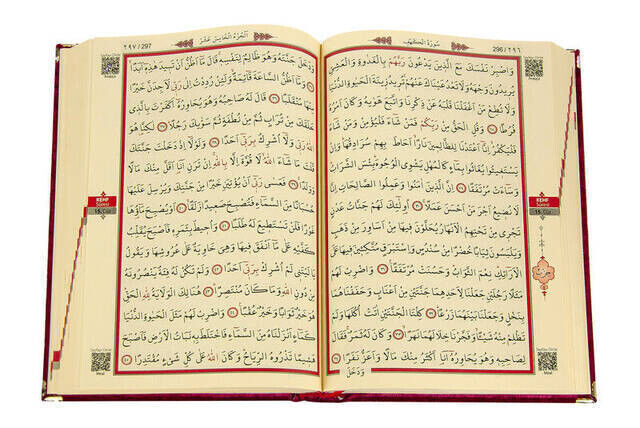 ٢٩٦ / 296
سُورَةُ الْكَهْفِ
وَاصْبِرْ نَفْسَكَ مَعَ الَّذِينَ يَدْعُونَ رَبَّهُمْ بِالْغَدٰوةِ وَالْعَشِيِّ
يُرِيدُونَ وَجْهَهُ وَلَا تَعْدُ عَيْنَاكَ عَنْهُمْ تُرِيدُ زِينَةَ الْحَيٰوةِ الدُّنْيَا
وَلَا تُطِعْ مَنْ اَغْفَلْنَا قَلْبَهُ عَنْ ذِكْرِنَا وَاتَّبَعَ هَوٰيهُ وَكَانَ اَمْرُهُ
فُرُطًا ﴿٢٨﴾ وَقُلِ الْحَقُّ مِنْ رَبِّكُمْ فَمَنْ شَاءَ فَلْيُؤْمِنْ وَمَنْ شَاءَ
فَلْيَكْفُرْ اِنَّا اَعْتَدْنَا لِلظَّالِمِينَ نَارًا اَحَاطَ بِهِمْ سُرَادِقُهَا وَاِنْ
يَسْتَغِيثُوا يُغَاثُوا بِمَاءٍ كَالْمُهْلِ يَشْوِي الْوُجُوهَ بِئْسَ الشَّرَابُ
وَسَاءَتْ مُرْتَفَقًا ﴿٢٩﴾ اِنَّ الَّذِينَ اٰمَنُوا وَعَمِلُوا الصَّالِحَاتِ اِنَّا
لَا نُضِيعُ اَجْرَ مَنْ اَحْسَنَ عَمَلًا ﴿٣٠﴾ اُولٰئِكَ لَهُمْ جَنَّاتُ عَدْنٍ
تَجْرِي مِنْ تَحْتِهِمُ الْاَنْهَارُ يُحَلَّوْنَ فِيهَا مِنْ اَسَاوِرَ مِنْ ذَهَبٍ
وَيَلْبَسُونَ ثِيَابًا خُضْرًا مِنْ سُنْدُسٍ وَاِسْتَبْرَقٍ مُتَّكِئِينَ فِيهَا عَلَى
الْاَرَائِكِ نِعْمَ الثَّوَابُ وَحَسُنَتْ مُرْتَفَقًا ﴿٣١﴾ وَاضْرِبْ لَهُمْ
مَثَلًا رَجُلَيْنِ جَعَلْنَا لِاَحَدِهِمَا جَنَّتَيْنِ مِنْ اَعْنَابٍ وَحَفَفْنَاهُمَا
بِنَخْلٍ وَجَعَلْنَا بَيْنَهُمَا زَرْعًا ﴿٣٢﴾ كِلْتَا الْجَنَّتَيْنِ اٰتَتْ اُكُلَهَا وَلَمْ
تَظْلِمْ مِنْهُ شَيْئًا وَفَجَّرْنَا خِلَالَهُمَا نَهَرًا ﴿٣٣﴾ وَكَانَ لَهُ ثَمَرٌ فَقَالَ
لِصَاحِبِهِ وَهُوَ يُحَاوِرُهُ اَنَا اَكْثَرُ مِنْكَ مَالًا وَاَعَزُّ نَفَرًا ﴿٣٤﴾
وَدَخَلَ
KEHF
Sûresi
15.Cüz
حزب
Meal
اَلْجُزْءُ الْخَامِسَ عَشَرَ
٢٩٧ / 297
وَدَخَلَ جَنَّتَهُ وَهُوَ ظَالِمٌ لِنَفْسِهِ قَالَ مَا اَظُنُّ اَنْ تَبِيدَ هٰذِهِ اَبَدًا
﴿٣٥﴾ وَمَا اَظُنُّ السَّاعَةَ قَائِمَةً وَلَئِنْ رُدِدْتُ اِلٰى رَبِّي لَاَجِدَنَّ خَيْرًا
مِنْهَا مُنْقَلَبًا ﴿٣٦﴾ قَالَ لَهُ صَاحِبُهُ وَهُوَ يُحَاوِرُهُ اَكَفَرْتَ بِالَّذِي
خَلَقَكَ مِنْ تُرَابٍ ثُمَّ مِنْ نُطْفَةٍ ثُمَّ سَوّٰيكَ رَجُلًا ﴿٣٧﴾ لٰكِنَّا هُوَ
اللّٰهُ رَبِّي وَلَا اُشْرِكُ بِرَبِّي اَحَدًا ﴿٣٨﴾ وَلَوْلَا اِذْ دَخَلْتَ جَنَّتَكَ
قُلْتَ مَا شَاءَ اللّٰهُ لَا قُوَّةَ اِلَّا بِاللّٰهِ اِنْ تَرَنِ اَنَا اَقَلَّ مِنْكَ مَالًا
وَوَلَدًا ﴿٣٩﴾ فَعَسٰى رَبِّي اَنْ يُؤْتِيَنِ خَيْرًا مِنْ جَنَّتِكَ وَيُرْسِلَ عَلَيْهَا
حُسْبَانًا مِنَ السَّمَاءِ فَتُصْبِحَ صَعِيدًا زَلَقًا ﴿٤٠﴾ اَوْ يُصْبِحَ مَاؤُهَا
غَوْرًا فَلَنْ تَسْتَطِيعَ لَهُ طَلَبًا ﴿٤١﴾ وَاُحِيطَ بِثَمَرِهِ فَاَصْبَحَ يُقَلِّبُ
كَفَّيْهِ عَلٰى مَا اَنْفَقَ فِيهَا وَهِيَ خَاوِيَةٌ عَلٰى عُرُوشِهَا وَيَقُولُ
يَا لَيْتَنِي لَمْ اُشْرِكْ بِرَبِّي اَحَدًا ﴿٤٢﴾ وَلَمْ تَكُنْ لَهُ فِئَةٌ يَنْصُرُونَهُ
مِنْ دُونِ اللّٰهِ وَمَا كَانَ مُنْتَصِرًا ﴿٤٣﴾ هُنَالِكَ الْوَلَايَةُ لِلّٰهِ الْحَقِّ
هُوَ خَيْرٌ ثَوَابًا وَخَيْرٌ عُقْبًا ﴿٤٤﴾ وَاضْرِبْ لَهُمْ مَثَلَ الْحَيٰوةِ الدُّنْيَا
كَمَاءٍ اَنْزَلْنَاهُ مِنَ السَّمَاءِ فَاخْتَلَطَ بِهِ نَبَاتُ الْاَرْضِ فَاَصْبَحَ
هَشِيمًا تَذْرُوهُ الرِّيَاحُ وَكَانَ اللّٰهُ عَلٰى كُلِّ شَيْءٍ مُقْتَدِرًا ﴿٤٥﴾
KEHF
Sûresi
15.Cüz
Meal